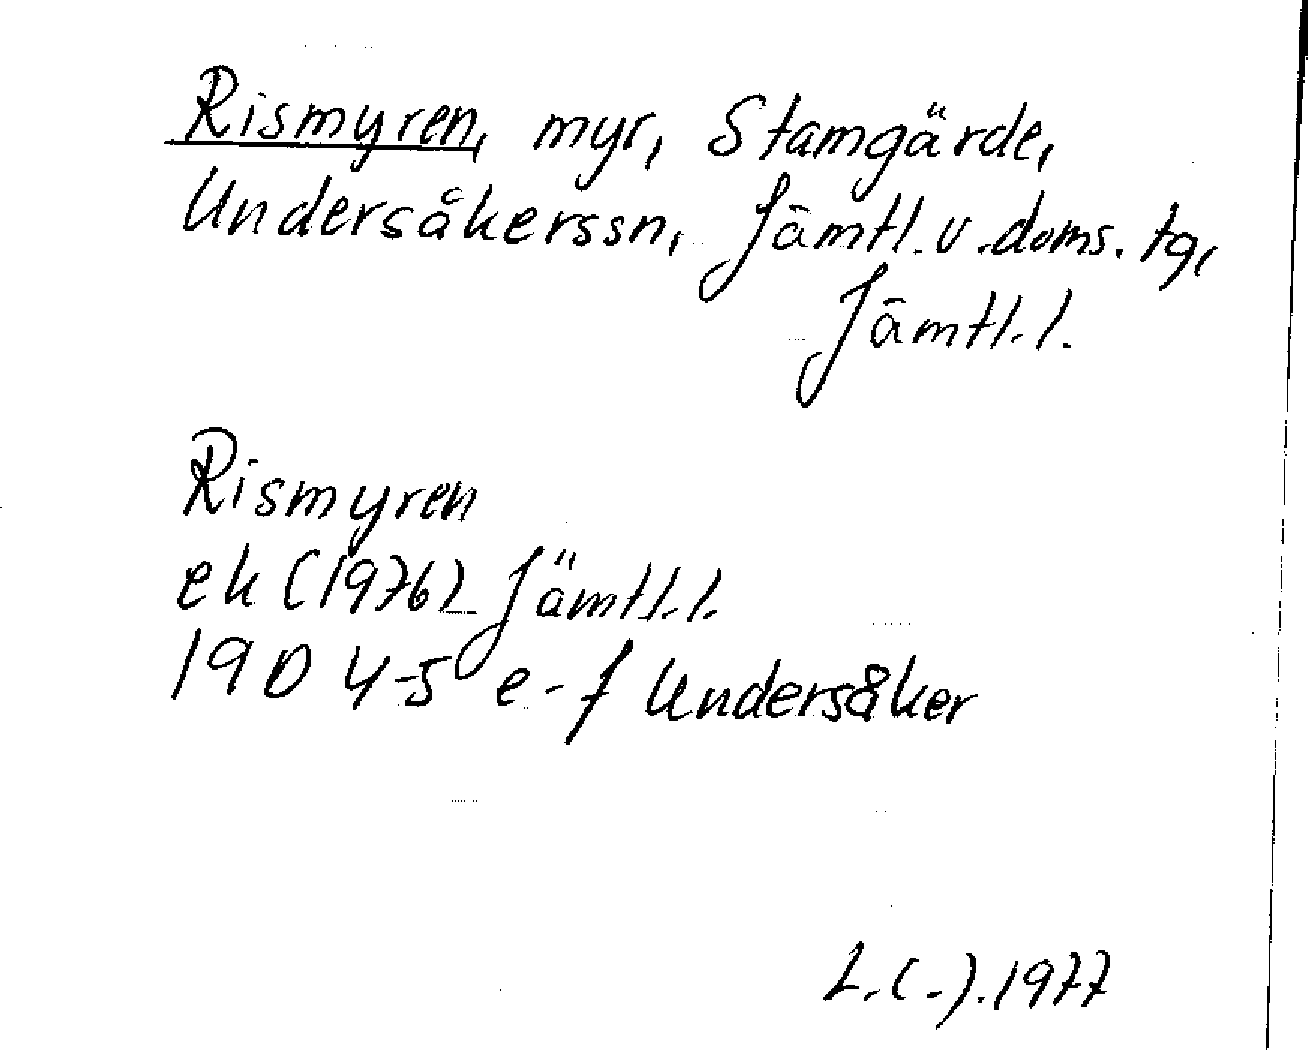 Rismyren, myr, Stamgärde,
Undersåkerssn, Jämtl. v. doms. tg,
Jämtl. l.
Rismyren
ek (1976) Jämtl. l.
19D 4-5 e-f Undersåker
L.(-).1977